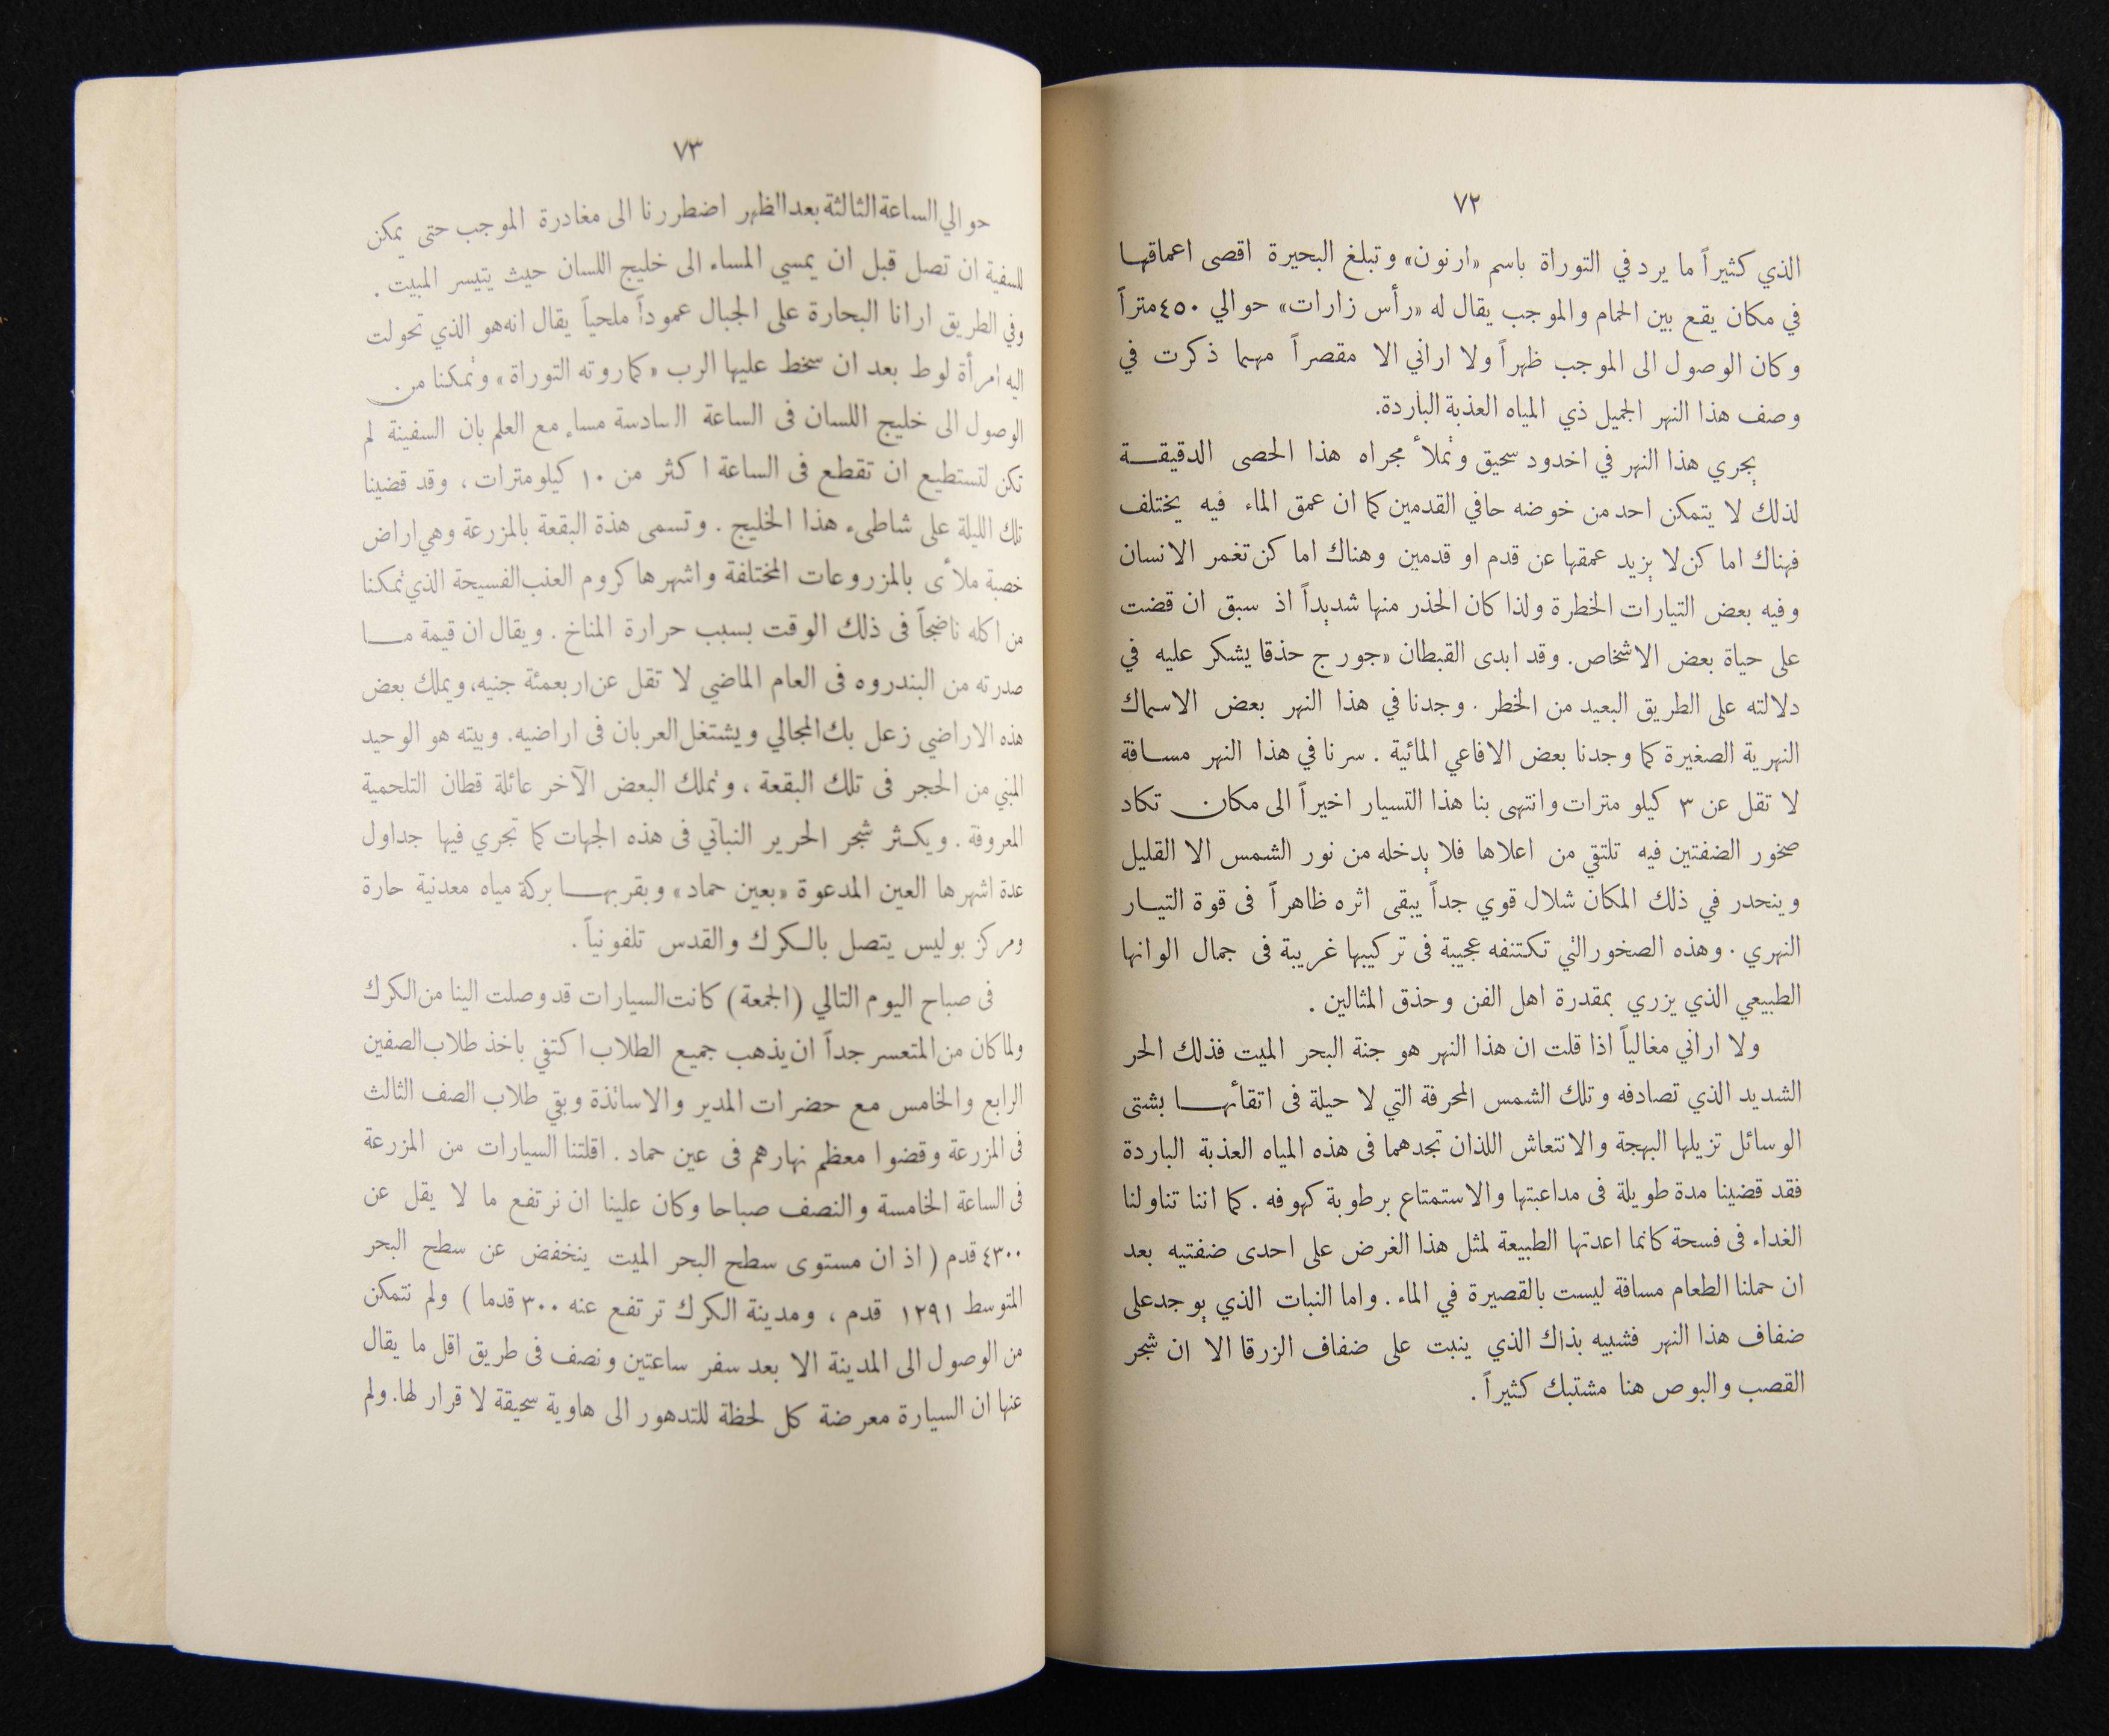 ٧٢
الذي كثيراً ما يرد في التوراة باسم «ارنون» وتبلغ البحيرة اقصى اعماقها
في مكان يقع بين الحمام والموجب يقال له «رأس زارات» حوالي ٤٥٠ متراً
وكان الوصول الى الموجب ظهراً ولا اراني الا مقصراً مهما ذكرت في
وصف هذا النهر الجميل ذي المياه العذبة الباردة.
يجري هذا النهر في اخدود سحيق وتملأ مجراه هذا الحصى الدقيقة
لذلك لا يتمكن احد من خوضه حافي القدمين كما ان عمق الماء فيه يختلف
فهناك اماكن لا يزيد عمقها عن قدم او قدمين وهناك اماكن تغمر الانسان
وفيه بعض التيارات الخطرة ولذا كان الحذر منها شديداً اذ سبق ان قضت
على حياة بعض الاشخاص. وقد ابدى القبطان «جورج حذقا يشكر عليه في
دلالته على الطريق البعيد من الخطر. وجدنا في هذا النهر بعض الاسماك
النهرية الصغيرة كما وجدنا بعض الافاعي المائية. سرنا في هذا النهر مسافة
لا تقل عن ٣ كيلو مترات وانتهى بنا هذا التسيار اخيراً الى مكان تكاد
صخور الضفتين فيه تلتقي من اعلاها فلا يدخله من نور الشمس الا القليل
وينحدر في ذلك المكان شلال قوي جداً يبقى اثره ظاهراً فى قوة التيار
النهري. وهذه الصخور التي تكتنفه عجيبة فى تركيبها غريبة فى جمال الوانها
الطبيعي الذي يزري بمقدرة اهل الفن وحذق المثالين.
ولا اراني مغالياً اذا قلت ان هذا النهر هو جنة البحر الميت فذلك الحر
الشديد الذي تصادفه وتلك الشمس المحرقة التي لا حيلة فى اتقائها بشتى
الوسائل تزيلها البهجة والانتعاش اللذان تجدهما فى هذه المياه العذبة الباردة
فقد قضينا مدة طويلة فى مداعبتها والاستمتاع برطوبة كهوفه. كما اننا تناولنا
الغداء فى فسحة كانما اعدتها الطبيعة لمثل هذا الغرض على احدى ضفتيه بعد
ان حملنا الطعام مسافة ليست بالقصيرة في الماء. واما النبات الذي يوجد على
ضفاف هذا النهر فشبيه بذاك الذي ينبت على ضفاف الزرقا الا ان شجر
القصب والبوص هنا مشتبك كثيراً.
٧٣
حوالي الساعة الثالثة بعد الظهر اضطررنا الى مغادرة الموجب حتى يمكن
للسفية ان تصل قبل ان يمسي المساء الى خليج اللسان حيث يتيسر المبيت.
وفي الطريق ارانا البحارة على الجبال عموداً ملحياً يقال انه هو الذي تحولت
اليه امرأة لوط بعد ان سخط عليها الرب «كما روته التوراة» وتمكنا من
الوصول الى خليج اللسان فى الساعة السادسة مساء مع العلم بان السفينة لم
تكن لتستطيع ان تقطع فى الساعة اكثر من ١٠ كيلومترات، وقد قضينا
تلك الليلة على شاطىء هذا الخليج. وتسمى هذة البقعة بالمزرعة وهي اراض
خصبة ملأى بالمزروعات المختلفة واشهرها كروم العنب الفسيحة الذي تمكنا
من اكله ناضجاً فى ذلك الوقت بسبب حرارة المناخ. ويقال ان قيمة ما
صدرته من البندروه فى العام الماضي لا تقل عن اربعمئة جنيه، ويملك بعض
هذه الاراضي زعل بك المجالي ويشتغل العربان فى اراضيه. وبيته هو الوحيد
المبني من الحجر فى تلك البقعة، وتملك البعض الآخر عائلة قطان التلحمية
المعروفة. ويكثر شجر الحرير النباتي فى هذه الجهات كما تجري فيها جداول
عدة اشهرها العين المدعوة «بعين حماد» وبقربها بركة مياه معدنية حارة
ومركز بوليس يتصل بالكرك والقدس تلفونياً.
فى صباح اليوم التالي (الجمعة) كانت السيارات قد وصلت الينا من الكرك
ولما كان من المتعسر جداً ان يذهب جميع الطلاب اكتفي باخذ طلاب الصفين
الرابع والخامس مع حضرات المدير والاساتذة وبقي طلاب الصف الثالث
فى المزرعة وقضوا معظم نهارهم فى عين حماد. اقلتنا السيارات من المزرعة
فى الساعة الخامسة والنصف صباحا وكان علينا ان نرتفع ما لا يقل عن
٤٣٠٠ قدم (اذ ان مستوى سطح البحر الميت ينخفض عن سطح البحر
المتوسط ١٢٩١ قدم، ومدينة الكرك ترتفع عنه ٣٠٠ قدما) ولم نتمكن
من الوصول الى المدينة الا بعد سفر ساعتين ونصف فى طريق اقل ما يقال
عنها ان السيارة معرضة كل لحظة للتدهور الى هاوية سحيقة لا قرار لها. ولم